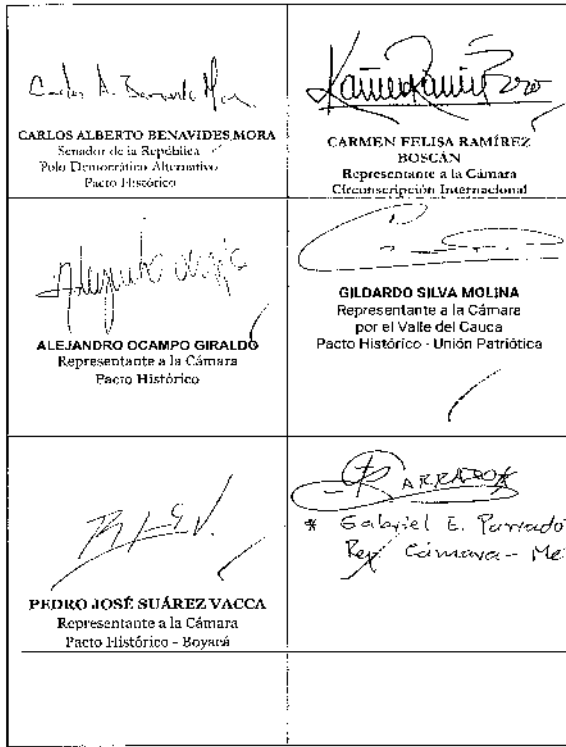 Carlos A. Benavides Mora
CARLOS ALBERTO BENAVIDES MORA
Senador de la República
Polo Democrático Alternativo
Pacto Histórico
CARMEN FELISA RAMÍREZ
BOSCÁN
Representante a la Cámara
Circunscripción Internacional
ALEJANDRO OCAMPO GIRALDO
Representante a la Cámara
Pacto Histórico
GILDARDO SILVA MOLINA
Representante a la Cámara
por el Valle del Cauca
Pacto Histórico - Unión Patriótica
PEDRO JOSÉ SUÁREZ VACCA
Representante a la Cámara
Pacto Histórico - Boyacá
PARRADO
* Gabriel E. Parrado
Rep Cámara - Me